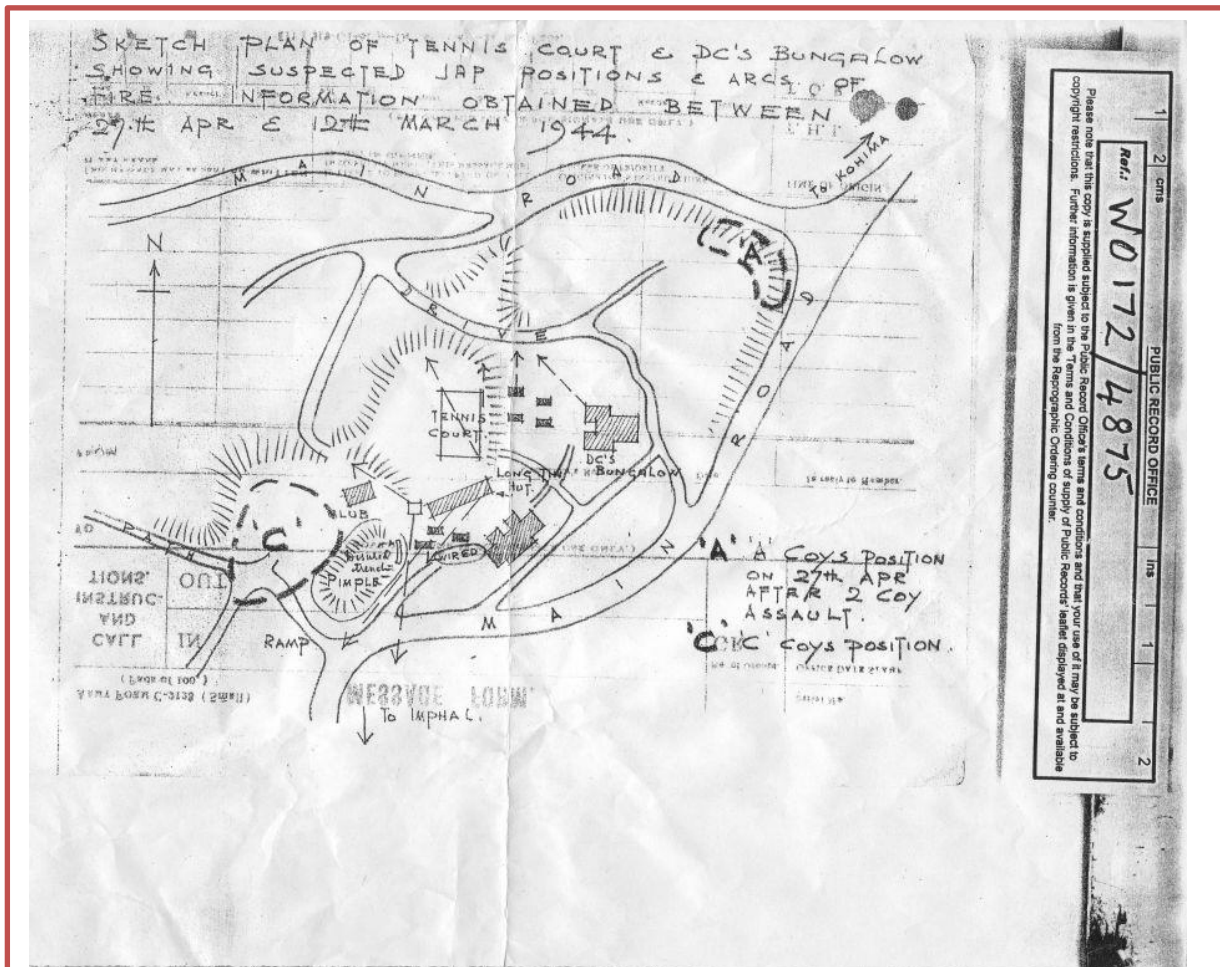 SKETCH PLAN OF TENNIS COURT & DC'S BUNGALOW
SHOWING SUSPECTED JAP POSITIONS & ARCS OF
FIRE. INFORMATION OBTAINED BETWEEN
27th APR & 12th MARCH 1944.
TO KOHIMA
MAIN ROAD
N
A
DRIVE
TENNIS
COURT.
DC'S
BUNGALOW
LONG TIN
HUT.
CLUB
C
PATH
WIRED
trench
RAMP
MAIN ROAD
To IMPHAL.
'A' A COYS POSITION
ON 27th APR
AFTER 2 COY
ASSAULT.
'C' 'C' COYS POSITION.
TIME OF ORIGIN
FROM
TO
In reply to Number
Date
CALL
AND
INSTRUC-
TIONS.
IN
OUT
MESSAGE FORM.
(Pads of 100.)
ARMY FORM C-2128 (Small)
OFFICE DATE STAMP
1 2 cms
PUBLIC RECORD OFFICE
ins 1 2
Ref.: WO 172/4875
Please note that this copy is supplied subject to the Public Record Office's terms and conditions and that your use of it may be subject to
copyright restrictions. Further information is given in the 'Terms and Conditions of supply of Public Records' leaflet displayed at and available
from the Reprographic Ordering counter.